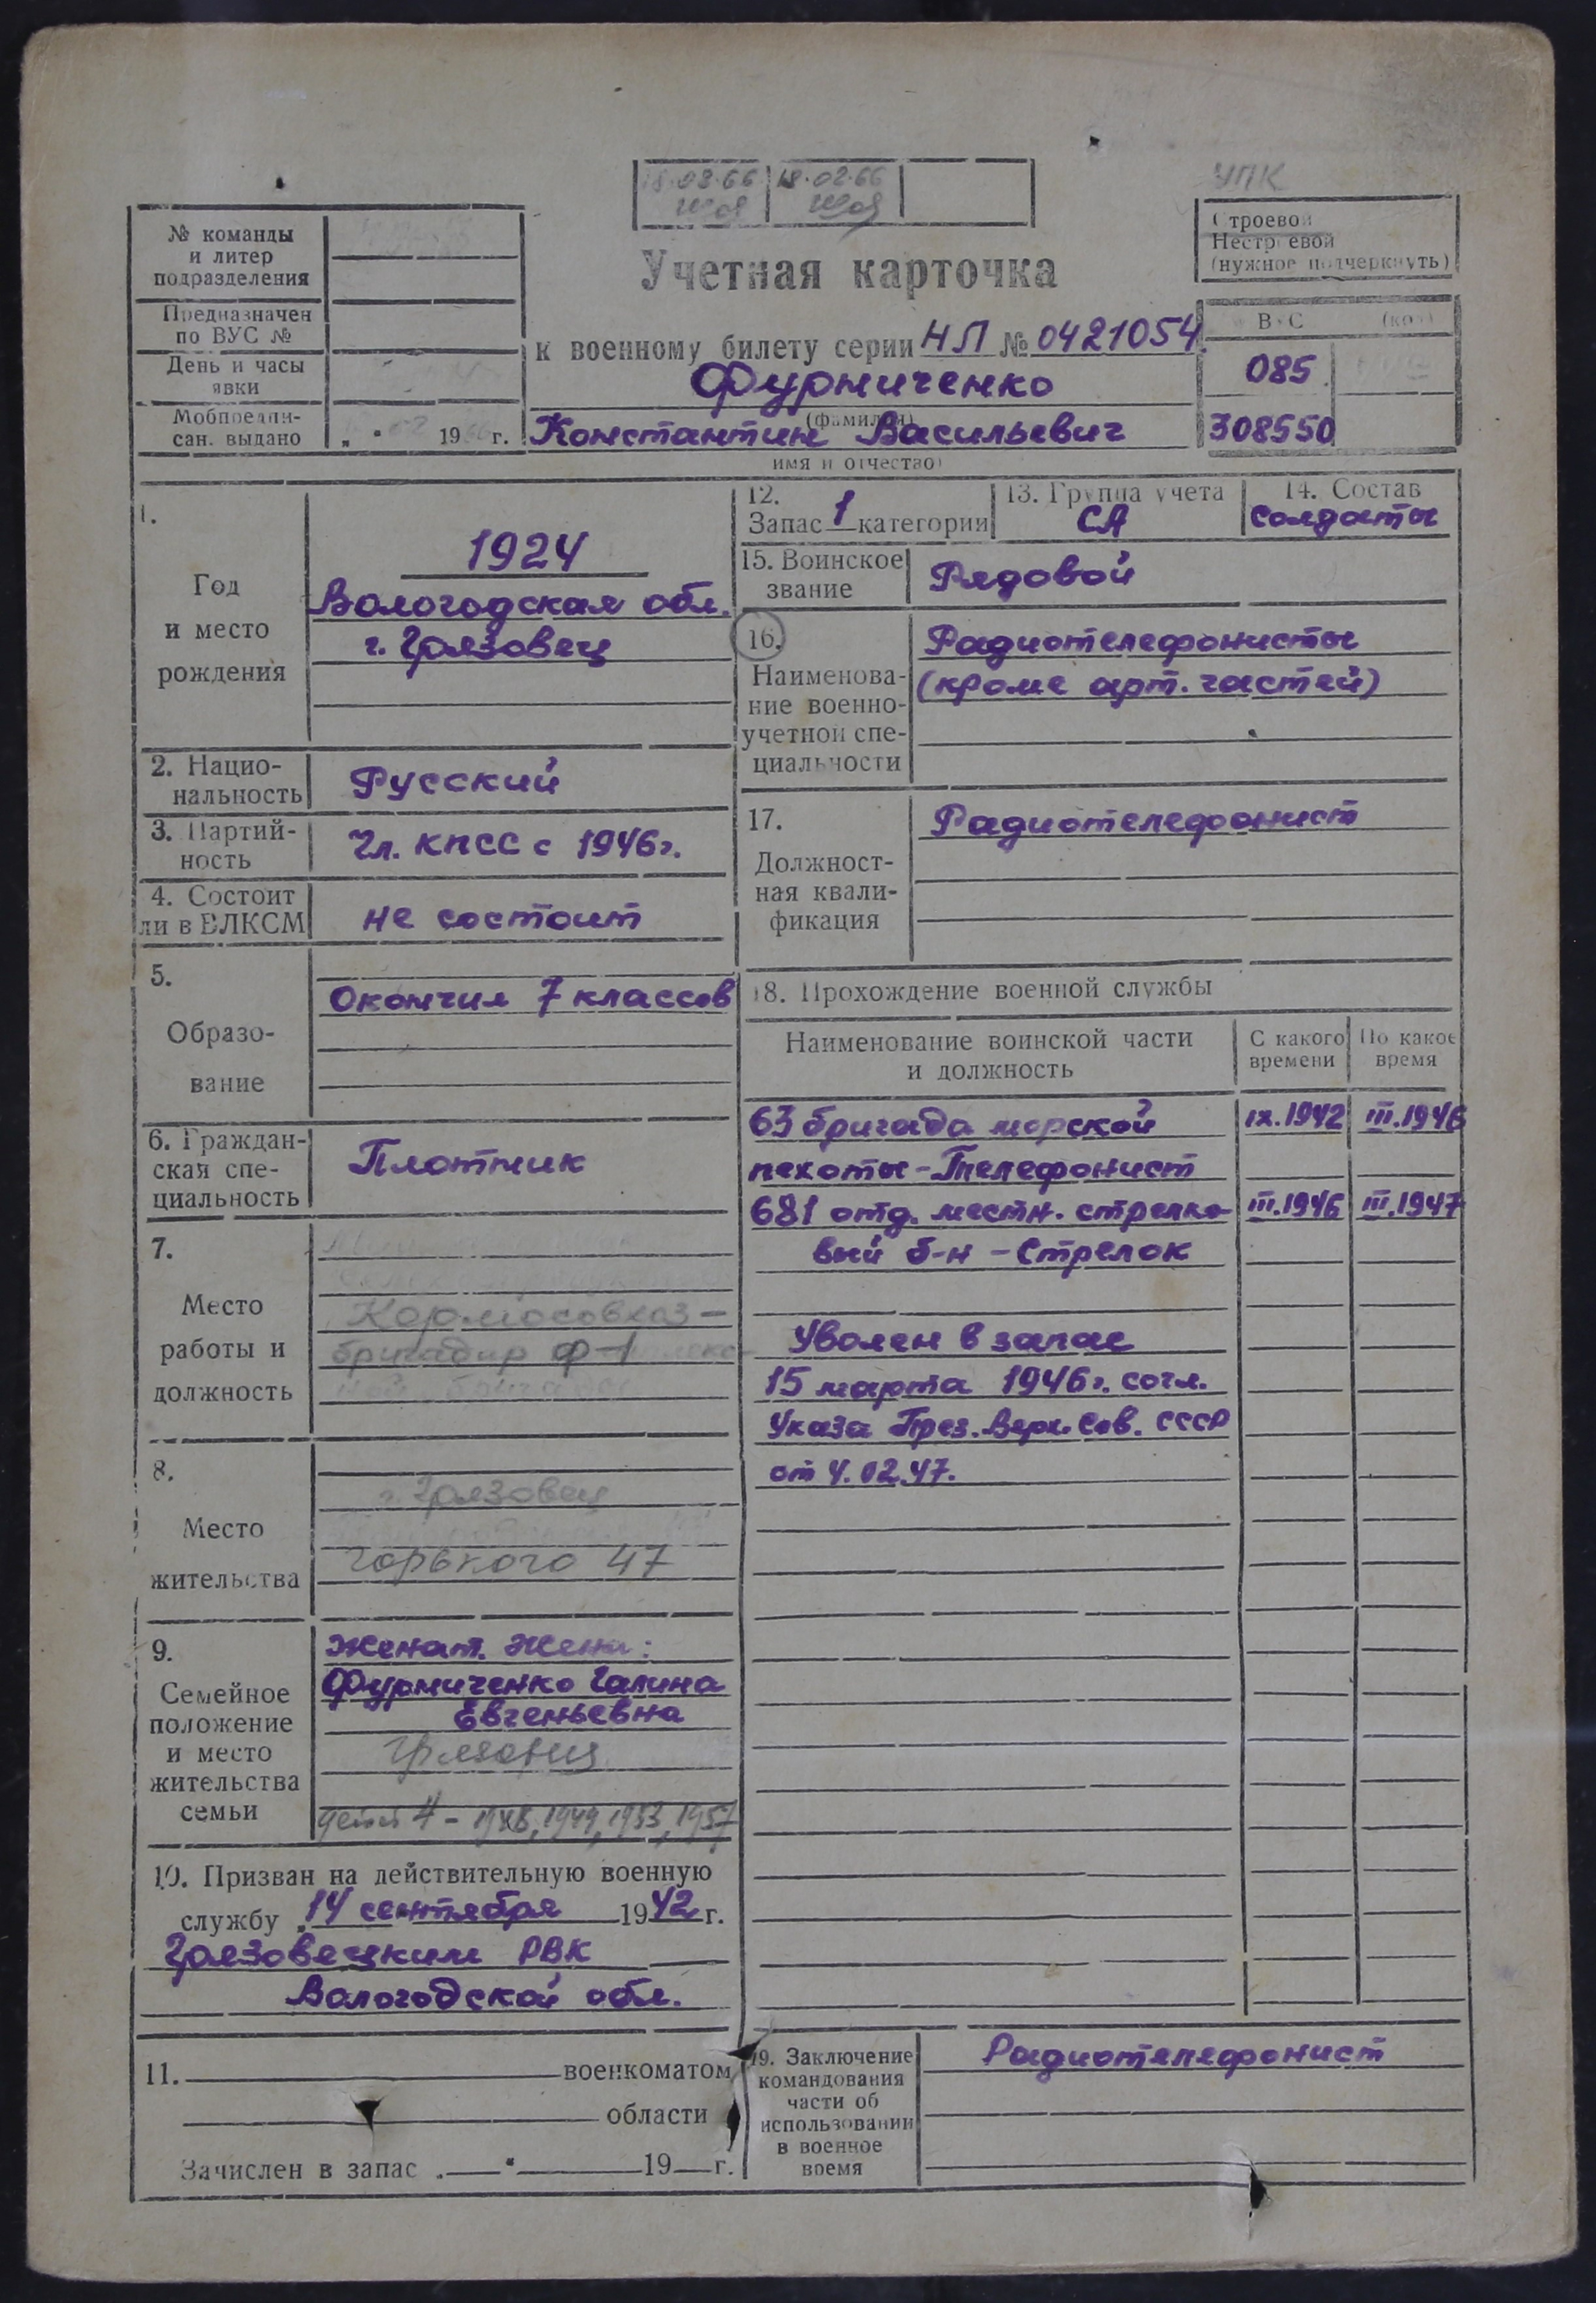 18.02.66 18.02.66
УПК
Строевой
Нестроевой
(нужное подчеркнуть)
№ команды
и литер
подразделения
Предназначен
по ВУС №
День и часы
явки
Мобпредпи-
сан. выдано
19 г.
Учетная карточка
к военному билету серии НЛ № 0421054
Фурниченко
(фамилия)
Константин Васильевич
имя и отчество)
ВУС (код)
085
308550
1.
Год
и место
рождения
1924
Вологодская обл.
г. Грязовец
2. Нацио-
нальность
Русский
3. Партий-
ность
Чл. КПСС с 1946г.
4. Состоит
ли в ВЛКСМ
не состоит
5.
Образо-
вание
Окончил 7 классов
6. Граждан-
ская спе-
циальность
Плотник
7.
Место
работы и
должность
бригадир
8.
Место
жительства
г. Грязовец
Горького 47
9.
Семейное
положение
и место
жительства
семьи
Женат. Жена:
Фурниченко Галина
Евгеньевна
Грязовец
детей 4 - 1948, 1949, 1953, 1957
10. Призван на действительную военную
службу „14 сентября 1942 г.
Грязовецким РВК
Вологодской обл.
11. военкоматом
области
Зачислен в запас „ " 19 г.
12.
Запас 1 категории
13. Группа учета
СА
14. Состав
Солдаты
15. Воинское
звание
Рядовой
16.
Наименова-
ние военно-
учетной спе-
циальности
Радиотелефонисты
(кроме арт. частей)
17.
Должност-
ная квали-
фикация
Радиотелефонист
18. Прохождение военной службы
Наименование воинской части
и должность
С какого
времени
По какое
время
63 бригада морской IX.1942 III.1946
пехоты - Телефонист
681 отд. местн. стрелко- III.1946 III.1947
вый б-н - Стрелок
Уволен в запас
15 марта 1946г. согл.
Указа През. Верх. Сов. СССР
от 4.02.47.
19. Заключение
командования
части об
использовании
в военное
время
Радиотелефонист